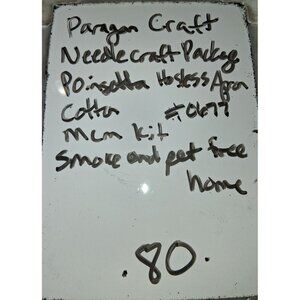 Paragon Craft
Needlecraft Package
Poinsetta Hostess Apron
Cotton #0677
MCM Kit
Smoke and pet free
home
.80.